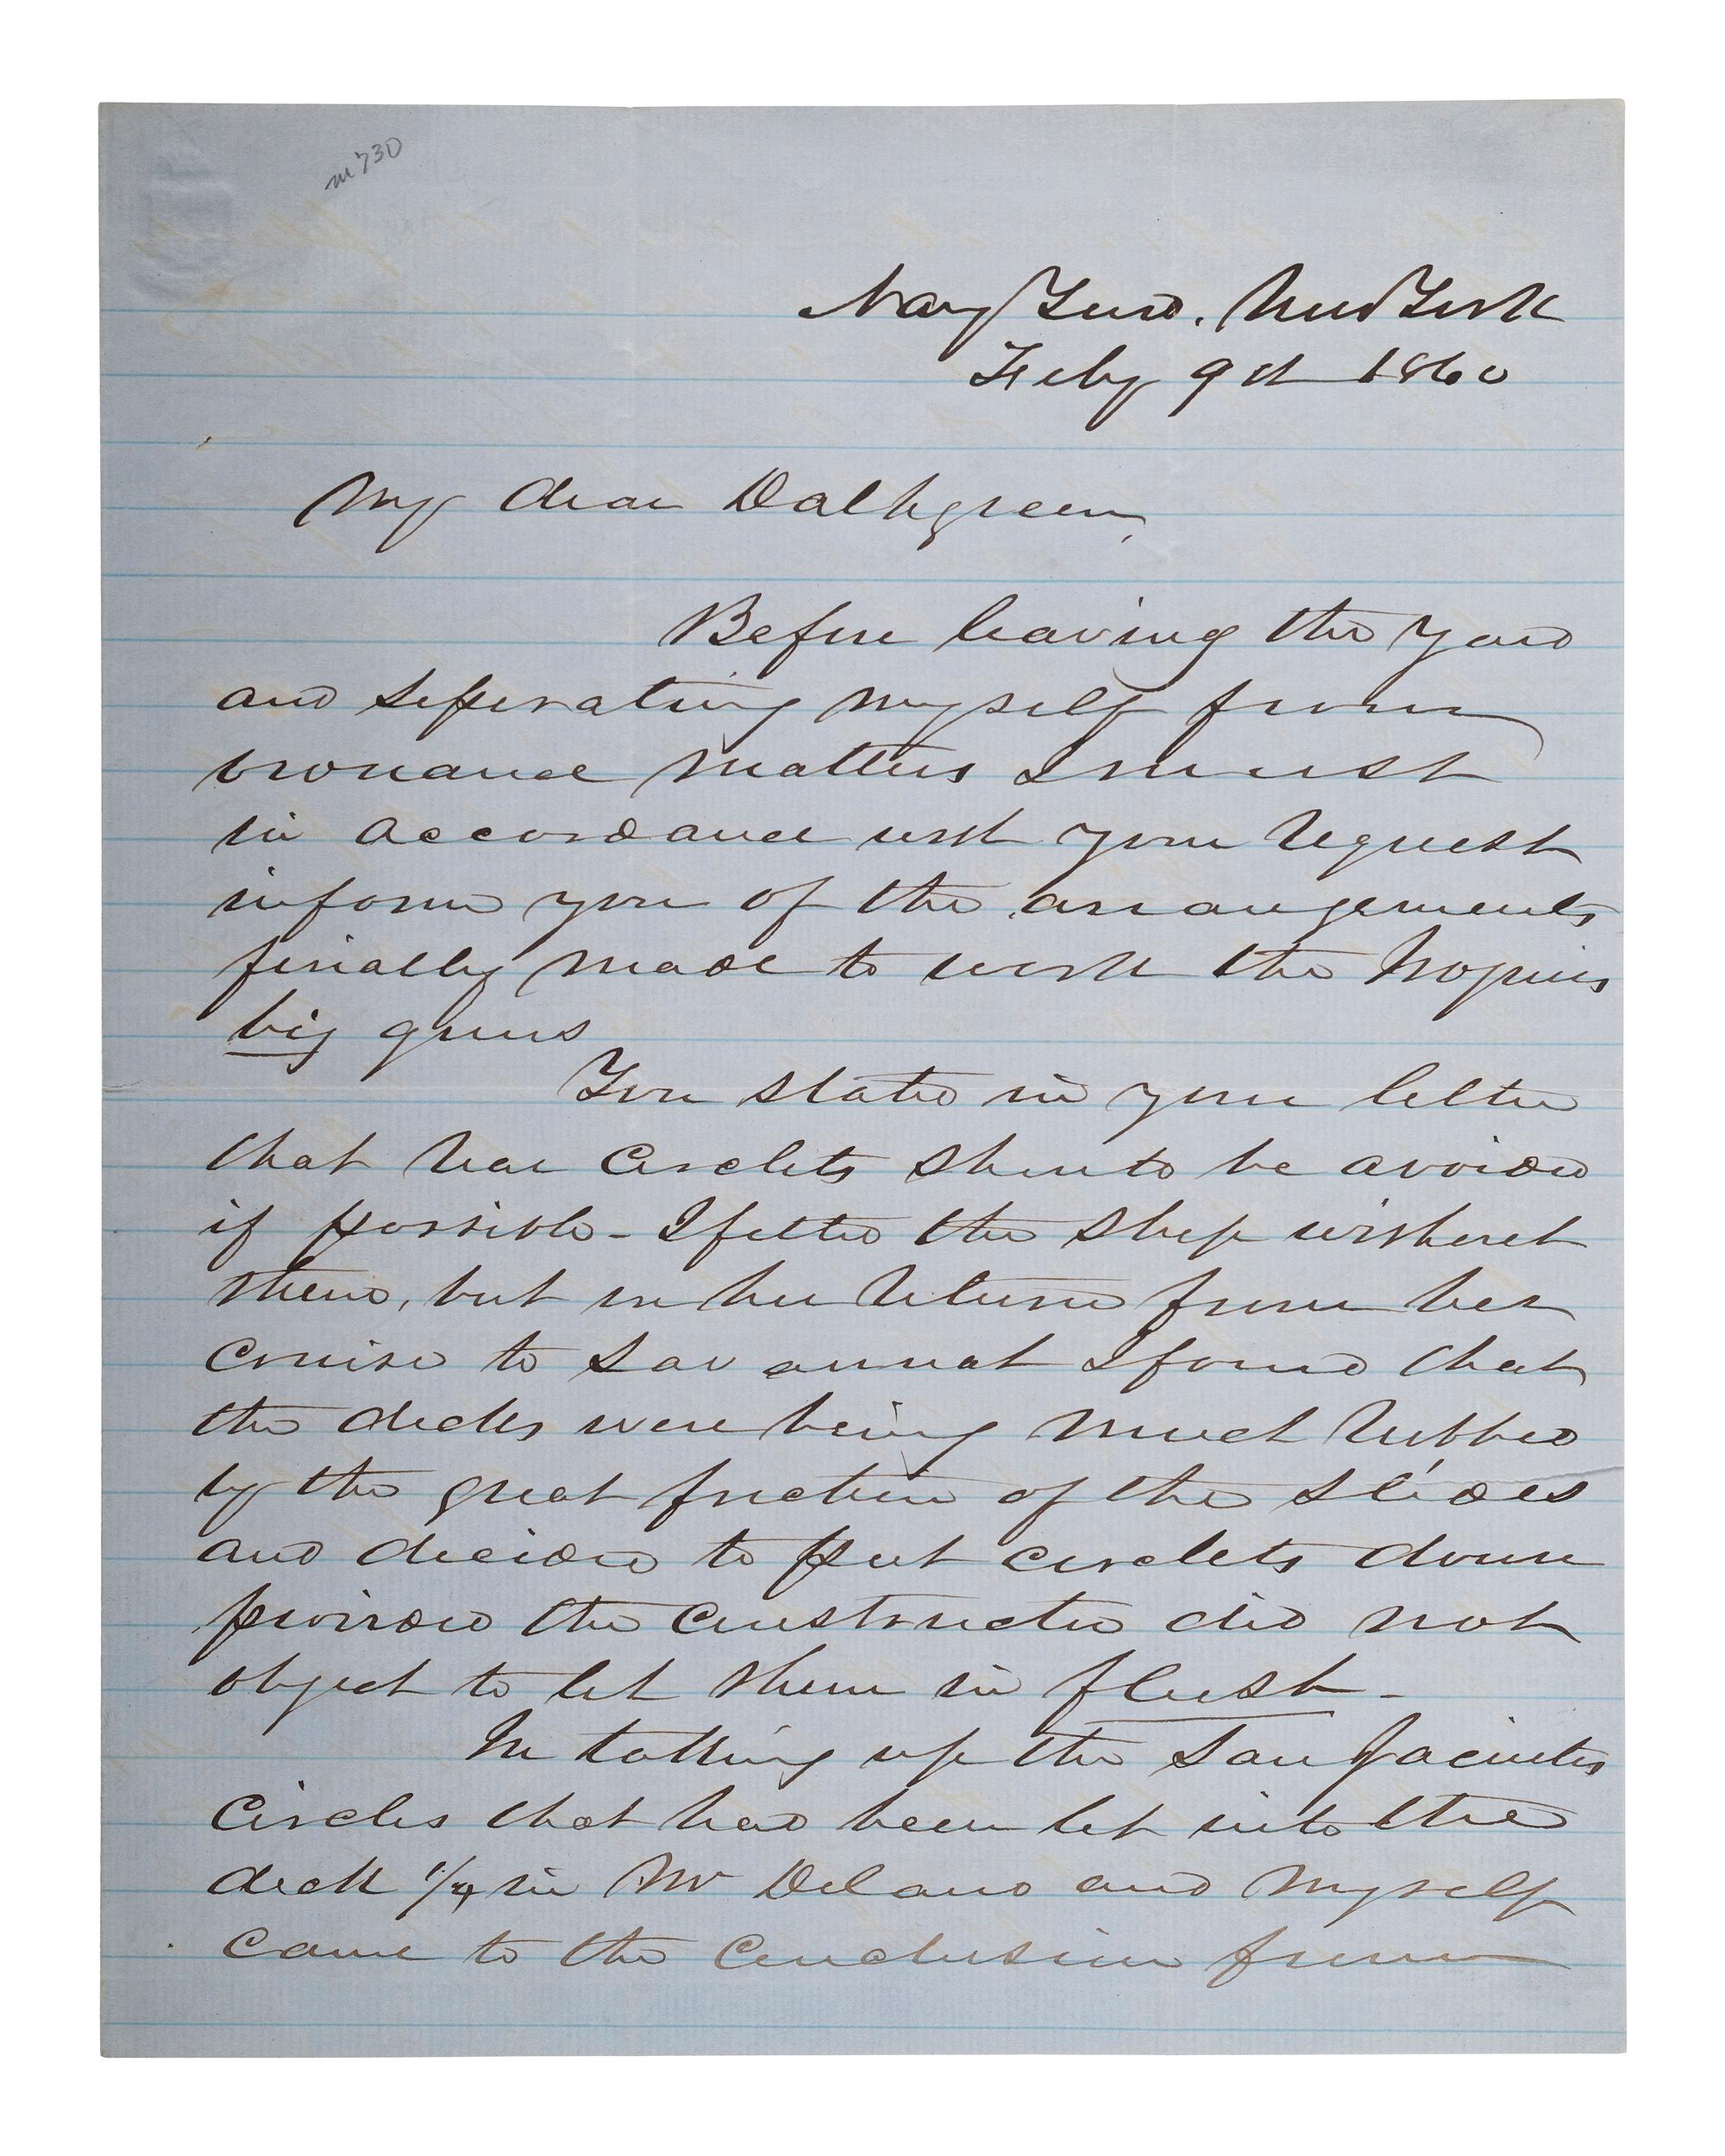 m730
Navy Yard. New York
Feby 9th 1860
My dear Dalhgreen,
Before leaving the Yard
and seperating myself from
ordnance matters I must
in accordance with your request
inform you of the arrangements
finally made to work the Iroquois
big guns
You state in your letter
that rear circlets should be avoided
if possible - I fitted the ship without
them, but on her return from her
cruise to Savannah I found that
the decks were being much rubbed
by the great friction of the slides
and decided to put circlets down
provided the constructor did not
object to let them in flush. -
In talking up the San Jacintos
circles that had been let into the
deck 1/4 in Mr Delano and myself
came to the conclusion from